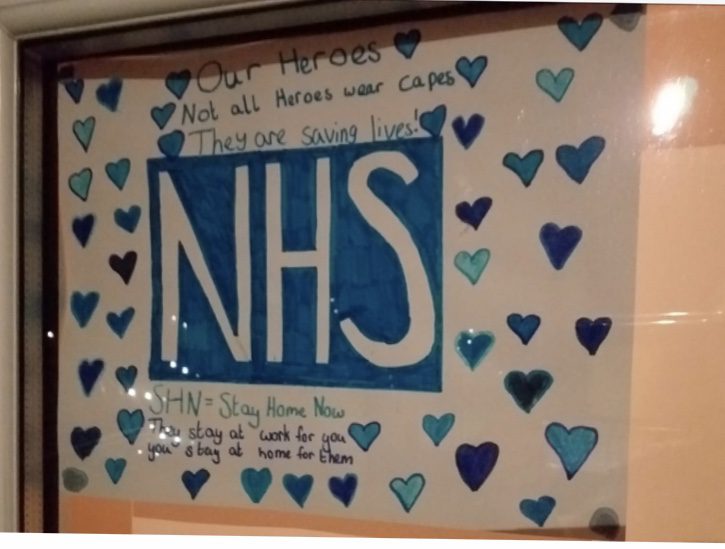 Our Heroes
Not all Heroes wear capes
They are saving lives!
NHS
SHN = Stay Home Now
They stay at work for you
you stay at home for them